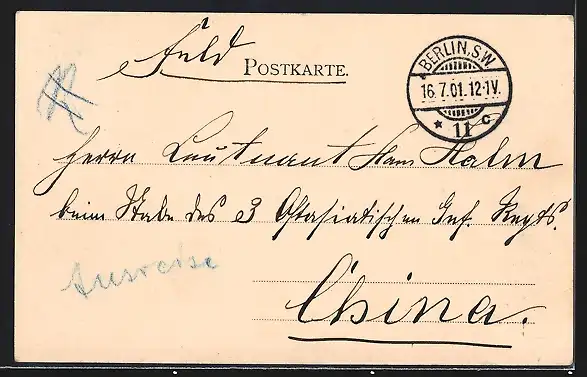 Feld
POSTKARTE.
BERLIN, S.W.
16.7.01.12-1V.
* 11 c
Herrn Leutnant Hans Halm
beim Stabe des 3 Ostasiatischen Inf. Regts.
Ausreise
China.